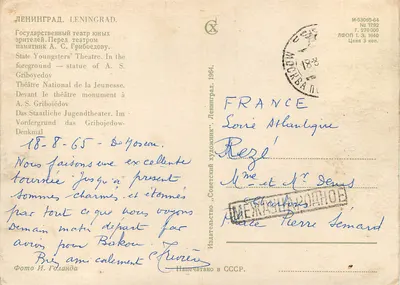 ЛЕНИНГРАД. LENINGRAD.
Государственный театр юных
зрителей. Перед театром
памятник А. С. Грибоедову.
State Youngsters' Theatre. In the
foreground — statue of A. S.
Griboyedov
Théâtre National de la Jeunesse.
Devant le théâtre monument à
A. S. Griboïedov
Das Staatliche Jugendtheater. Im
Vordergrund das Gribojedow-
Denkmal
18-8-65 — De Moscou
Nous faisons une excellente
tournée jusqu'à présent
sommes charmés et étonnés
par tout ce que nous voyons
Demain matin départ par
avion pour Bakou.
Bien amicalement
Фото Н. Голанда
Издательство „Советский художник" Ленинград. 1964.
НАПЕЧАТАНО В СССР.
Цена 3 коп.
МОСКВА
FRANCE
Loire Atlantique
Rezé
Mme et Mr Denis
МЕЖДУНАРОДНОЕ
Pierre Sémard